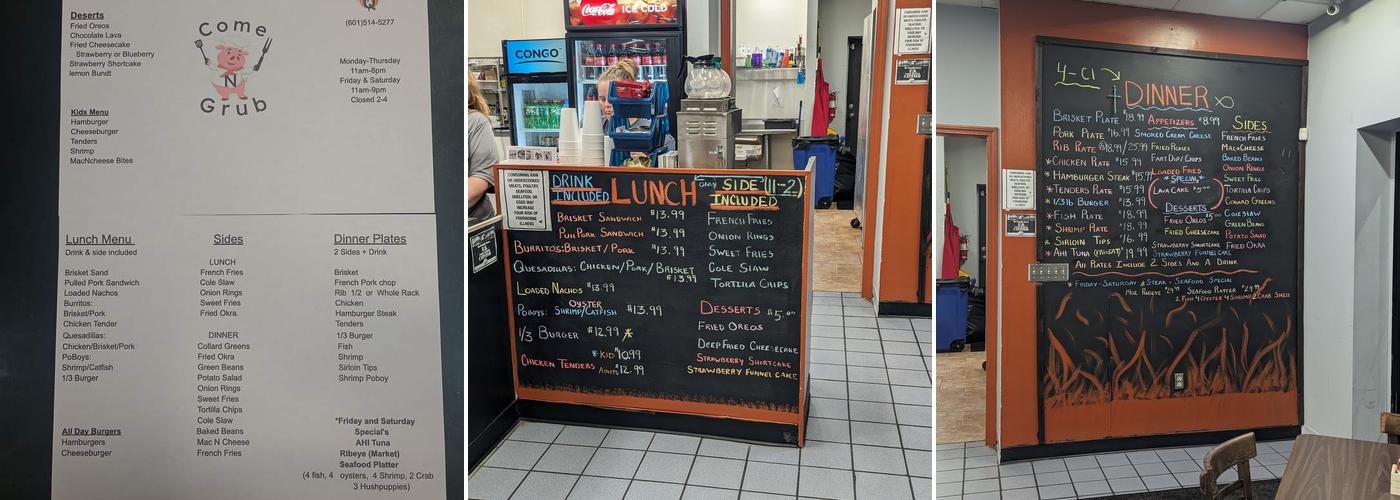 Deserts
Fried Oreos
Chocolate Lava
Fried Cheesecake
Strawberry or Blueberry
Strawberry Shortcake
lemon Bundt
Kids Menu
Hamburger
Cheeseburger
Tenders
Shrimp
MacNcheese Bites
Come
N
Grub
(601)514-5277
Monday-Thursday
11am-8pm
Friday & Saturday
11am-9pm
Closed 2-4
Lunch Menu
Drink & side included
Brisket Sand
Pulled Pork Sandwich
Loaded Nachos
Burritos:
Brisket/Pork
Chicken Tender
Quesadillas:
Chicken/Brisket/Pork
PoBoys:
Shrimp/Catfish
1/3 Burger
All Day Burgers
Hamburgers
Cheeseburger
Sides
LUNCH
French Fries
Cole Slaw
Onion Rings
Sweet Fries
Fried Okra.
DINNER
Collard Greens
Fried Okra
Green Beans
Potato Salad
Onion Rings
Sweet Fries
Tortilla Chips
Cole Slaw
Baked Beans
Mac N Cheese
French Fries
Dinner Plates
2 Sides + Drink
Brisket
French Pork chop
Rib 1/2 or Whole Rack
Chicken
Hamburger Steak
Tenders
1/3 Burger
Fish
Shrimp
Sirloin Tips
Shrimp Poboy
*Friday and Saturday
Special's
AHI Tuna
Ribeye (Market)
Seafood Platter
(4 fish, 4 oysters, 4 Shrimp, 2 Crab
3 Hushpuppies)
Coca-Cola ICE COLD
CONGO
CONSUMING RAW
OR UNDERCOOKED
MEATS, POULTRY,
SEAFOOD,
SHELLFISH, OR
EGGS MAY
INCREASE
YOUR RISK OF
FOODBORNE
ILLNESS
DRINK
INCLUDED
LUNCH
ONLY
SIDE (11-2)
INCLUDED
BRISKET SANDWICH $13.99
PULL PORK SANDWICH $13.99
BURRITOS: BRISKET/PORK $13.99
QUESADILLAS: CHICKEN/PORK/BRISKET
$13.99
LOADED NACHOS $13.99
OYSTER
POBOYS: SHRIMP/CATFISH $13.99
1/3 BURGER $12.99 *
CHICKEN TENDERS
*KID $10.99
ADULT $12.99
FRENCH FRIES
ONION RINGS
SWEET FRIES
COLE SLAW
TORTILLA CHIPS
DESSERTS $5.00
FRIED OREOS
DEEP FRIED CHEESECAKE
STRAWBERRY SHORTCAKE
STRAWBERRY FUNNEL CAKE
4-Cl
DINNER
BRISKET PLATE $18.99
PORK PLATE $16.99
RIB PLATE $18.99/25.99
*CHICKEN PLATE $15.99
*HAMBURGER STEAK $15.99
*TENDERS PLATE $15.99
*1/3 lb BURGER $13.99
*FISH PLATE $18.99
*SHRIMP PLATE $18.99
*SIRLOIN TIPS $16.99
*AHI TUNA (FRI/SAT) $19.99
APPETIZERS $8.99
SMOKED CREAM CHEESE
FRIED PICKLES
FART DIP/CHIPS
LOADED FRIES
*SPECIAL*
LAVA CAKE $5.00
DESSERTS
FRIED OREOS $5.00
FRIED CHEESECAKE
STRAWBERRY SHORTCAKE
STRAWBERRY FUNNEL CAKE
SIDES
FRENCH FRIES
MAC+CHEESE
BAKED BEANS
ONION RINGS
SWEET FRIES
TORTILLA CHIPS
COLLARD GREENS
COLE SLAW
GREEN BEANS
POTATO SALAD
FRIED OKRA
ALL PLATES INCLUDE 2 SIDES AND A DRINK
*FRIDAY-SATURDAY *STEAK-SEAFOOD SPECIAL
14oz RIBEYE $29.99 SEAFOOD PLATTER $29.99
2 FISH 4 OYSTER 4 SHRIMP 2 CRAB SHELL